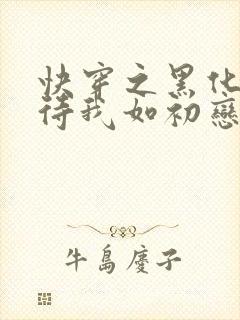 快穿之黑化
待我如初戀
牛島慶子